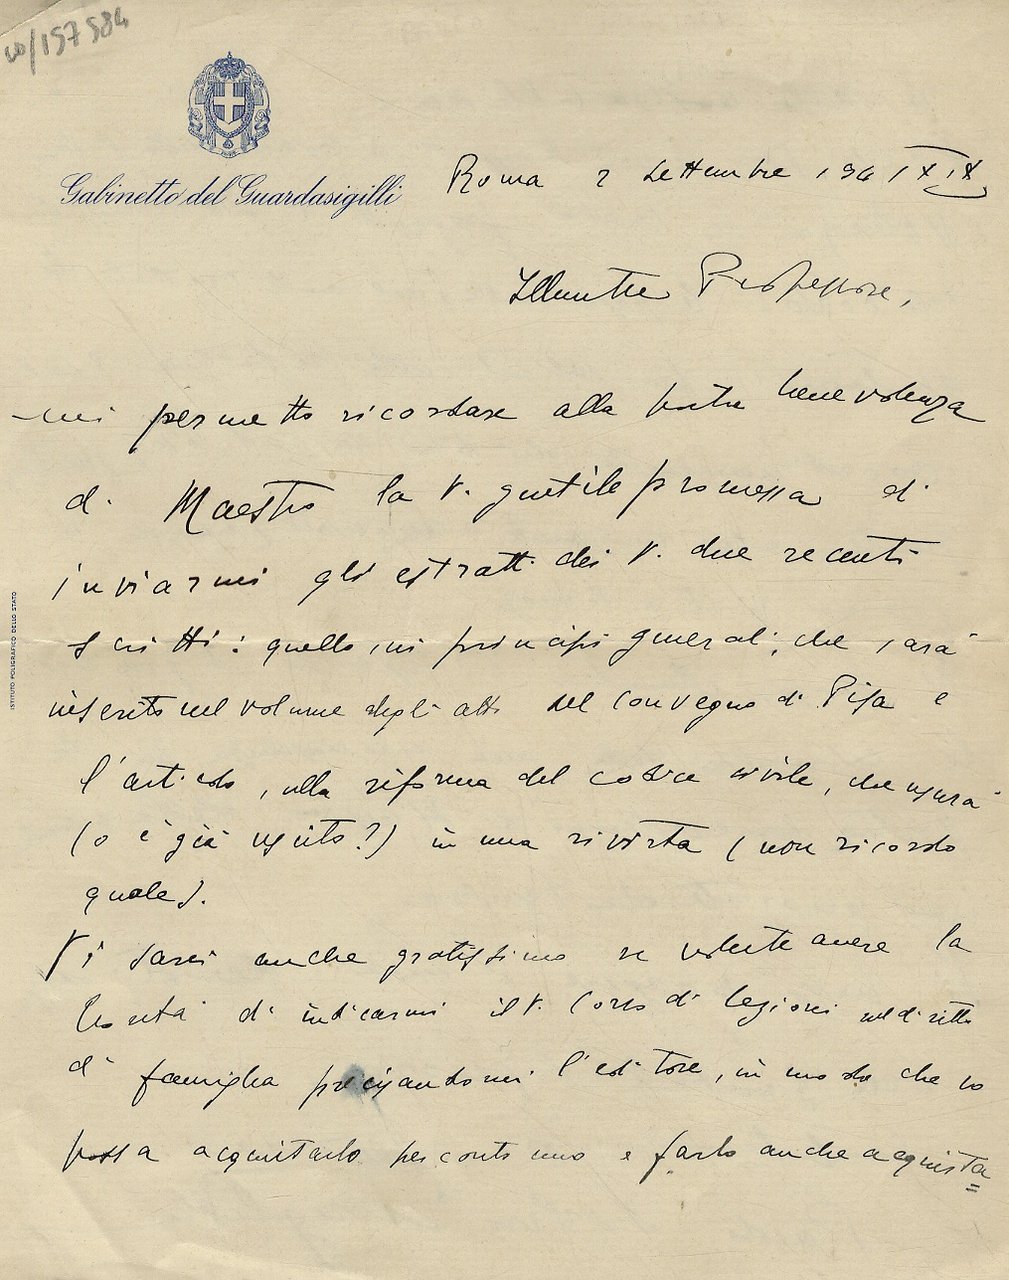 60/157584
Gabinetto del Guardasigilli
Roma 2 settembre 1941 XIX
Illustre Professore,
mi permetto ricordare alla vostra benevolenza
di Maestro la V. gentile promessa di
inviarmi gli estratti dei V. due recenti
scritti: quello sui principi generali, che sarà
inserito nel volume degli atti del convegno di Pisa e
l'articolo sulla riforma del codice civile, che uscirà
(o è già uscito?) in una rivista (non ricordo
quale).
Vi sarei anche gratissimo se voleste avere la
bontà di indicarmi il V. corso di lezioni sul diritto
di famiglia precisandomi l'editore, in modo che io
possa acquistarlo per conto mio e farlo anche acquista=
ISTITUTO POLIGRAFICO DELLO STATO